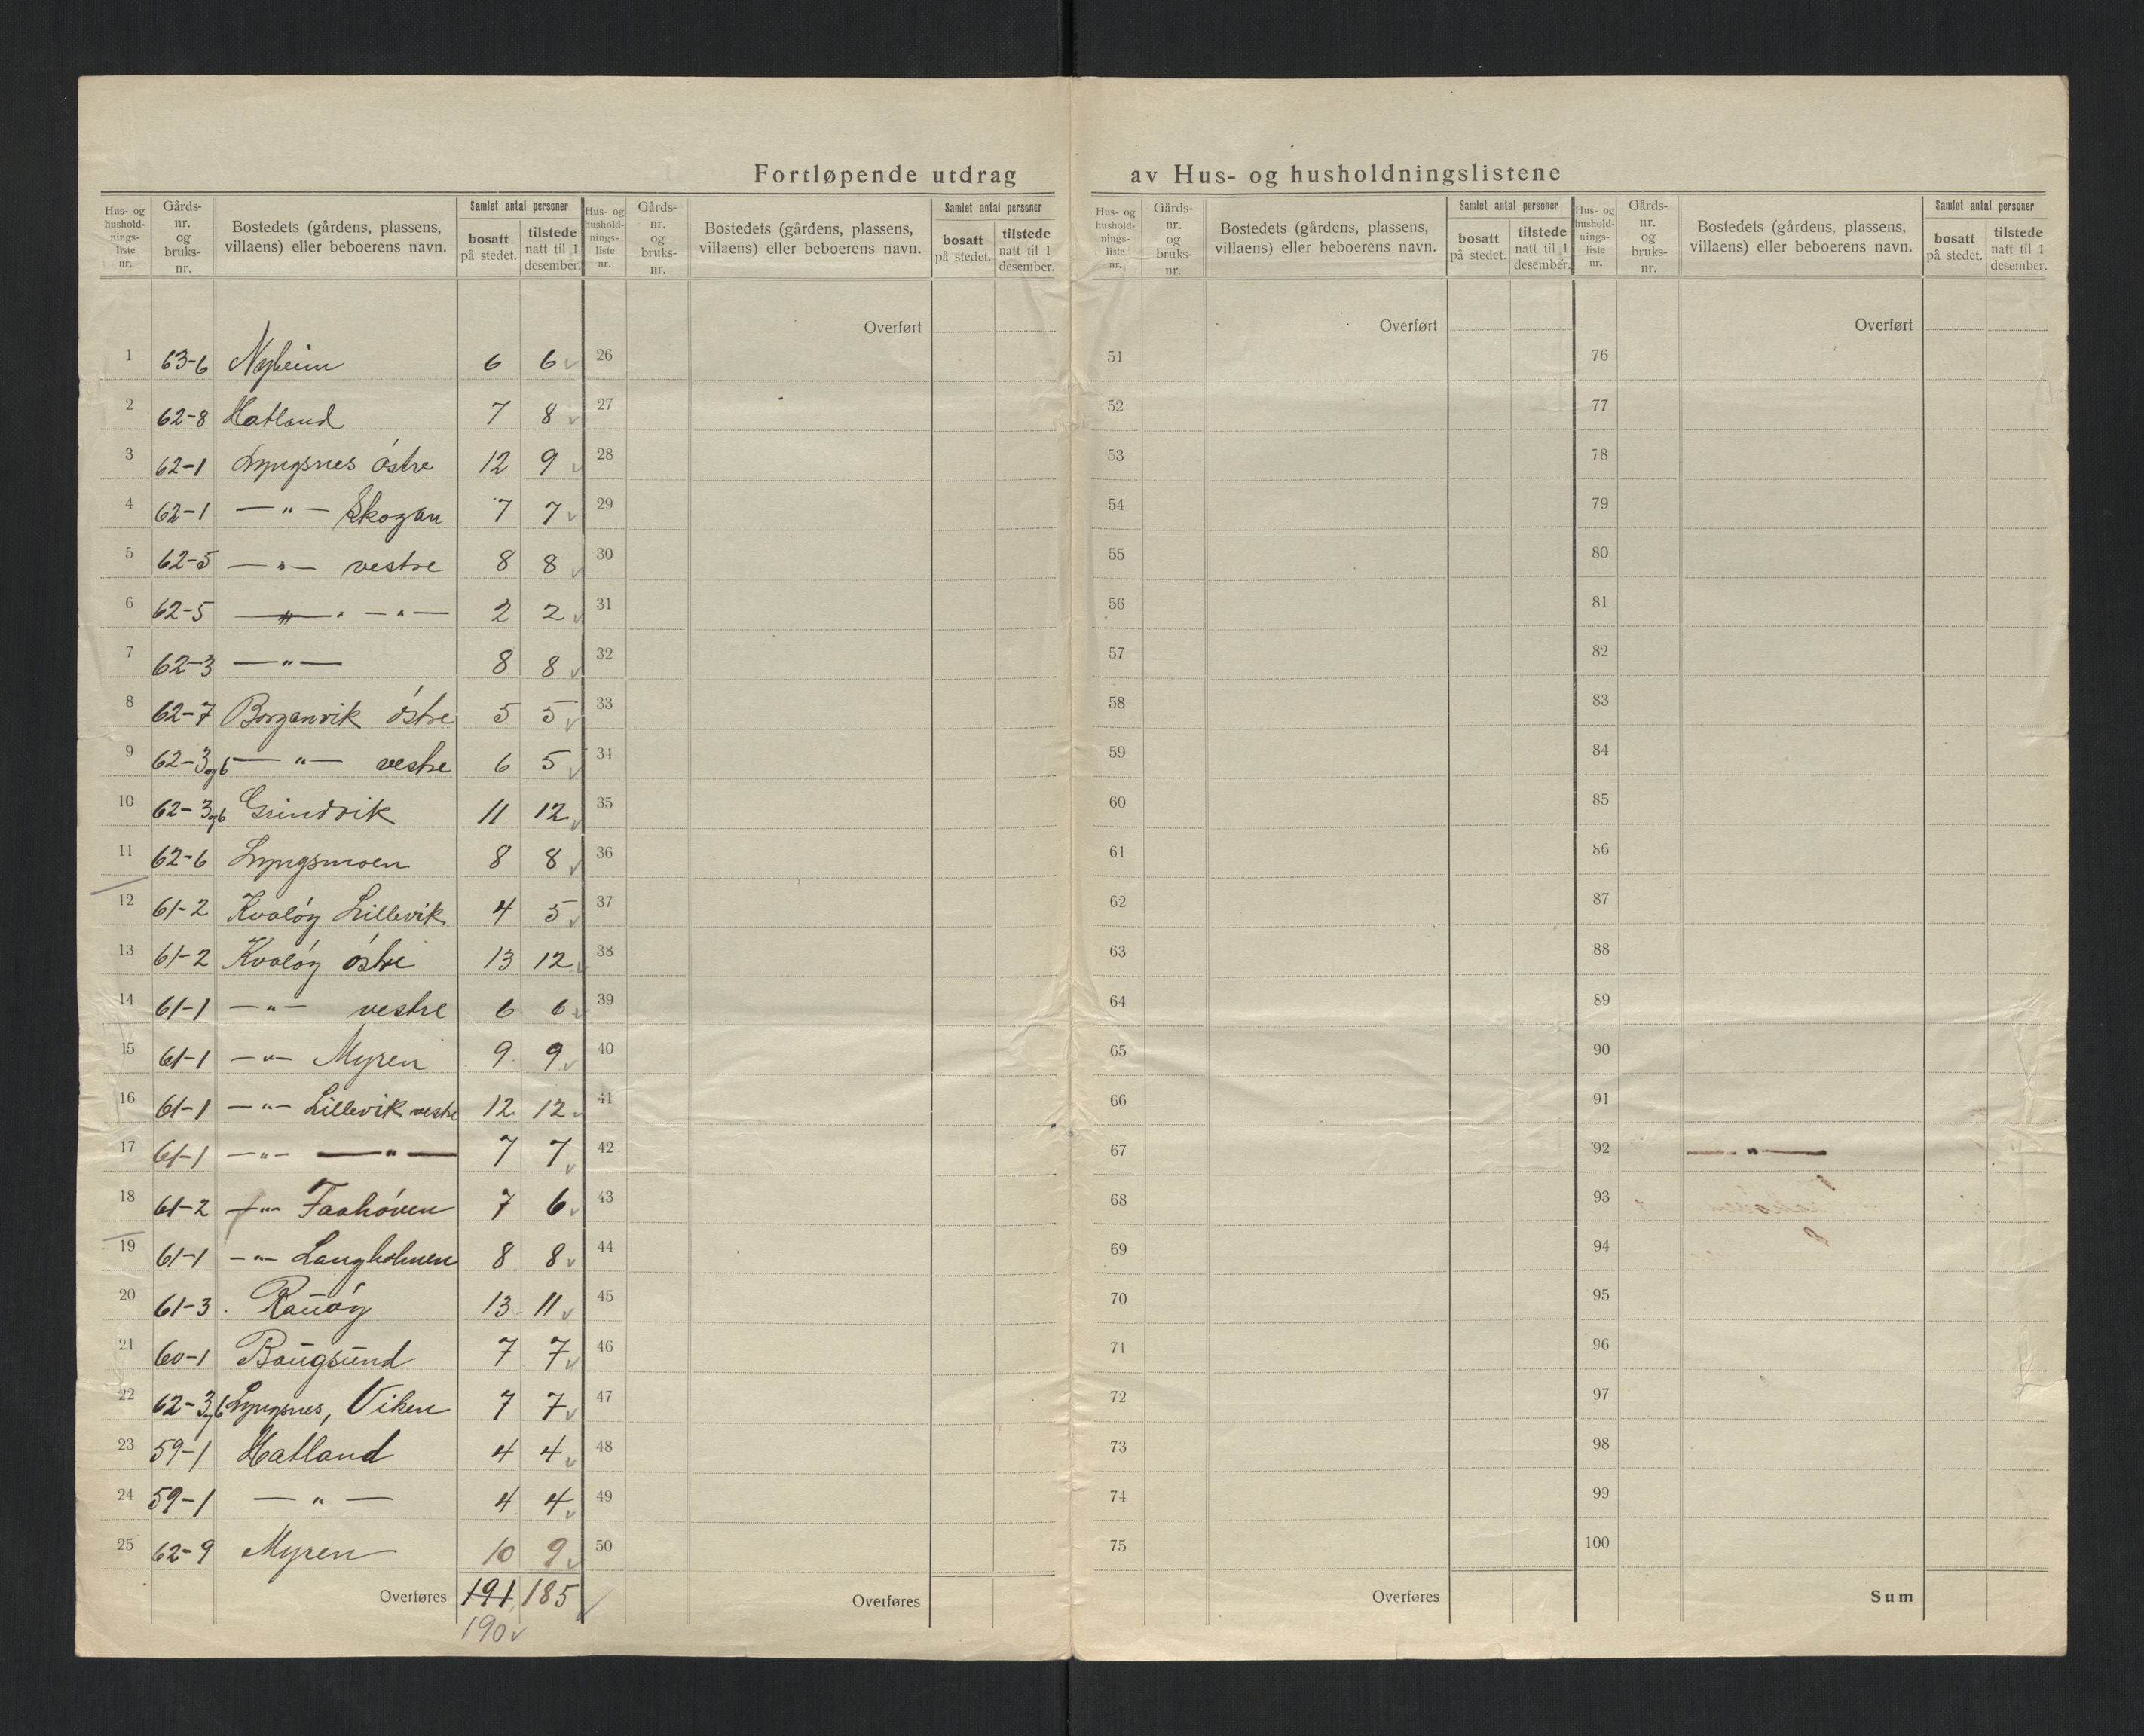 Fortløpende utdrag av Hus- og husholdningslistene
Hus- og hushold- nings- liste nr. Gårds- nr. og bruks- nr. Bostedets (gårdens, plassens, villaens) eller beboerens navn. Samlet antal personer bosatt på stedet. tilstede natt til 1 desember.
Hus- og hushold- nings- liste nr. Gårds- nr. og bruks- nr. Bostedets (gårdens, plassens, villaens) eller beboerens navn. Samlet antal personer bosatt på stedet. tilstede natt til 1 desember.
Hus- og hushold- nings- liste nr. Gårds- nr. og bruks- nr. Bostedets (gårdens, plassens, villaens) eller beboerens navn. Samlet antal personer bosatt på stedet. tilstede natt til 1 desember.
Hus- og hushold- nings- liste nr. Gårds- nr. og bruks- nr. Bostedets (gårdens, plassens, villaens) eller beboerens navn. Samlet antal personer bosatt på stedet. tilstede natt til 1 desember.
Overført Overført Overført
1 63-6 Nyheim 6 6 v 26 51 76
2 62-8 Hatland 7 8 v 27 52 77
3 62-1 Lyngsnes østre 12 9 v 28 53 78
4 62-1 — " — Skogan 7 7 v 29 54 79
5 62-5 — " — vestre 8 8 v 30 55 80
6 62-5 — " — " — 2 2 v 31 56 81
7 62-3 — " — 8 8 v 32 57 82
8 62-7 Borganvik østre 5 5 v 33 58 83
9 62-3 og 6 — " — vestre 6 5 v 34 59 84
10 62-3 og 6 Grindvik 11 12 v 35 60 85
11 62-6 Lyngsmoen 8 8 v 36 61 86
12 61-2 Kvaløy Lillevik 4 5 v 37 62 87
13 61-2 Kvaløy østre 13 12 v 38 63 88
14 61-1 — " — vestre 6 6 v 39 64 89
15 61-1 — " — Myren 9 9 v 40 65 90
16 61-1 — " — Lillevik vestre 12 12 v 41 66 91
17 61-1 — " — — " — 7 7 v 42 67 92
18 61-2 — " — Faahøven 7 6 v 43 68 93
19 61-1 — " — Langholmen 8 8 v 44 69 94
20 61-3 Rauøy 13 11 v 45 70 95
21 60-1 Baugsund 7 7 v 46 71 96
22 62-3 og 6 Lyngsnes, Viken 7 7 v 47 72 97
23 59-1 Hatland 4 4 v 48 73 98
24 59-1 — " — 4 4 v 49 74 99
25 62-9 Myren 10 9 v 50 75 100
Overføres 191 185 Overføres Overføres Sum
190 v